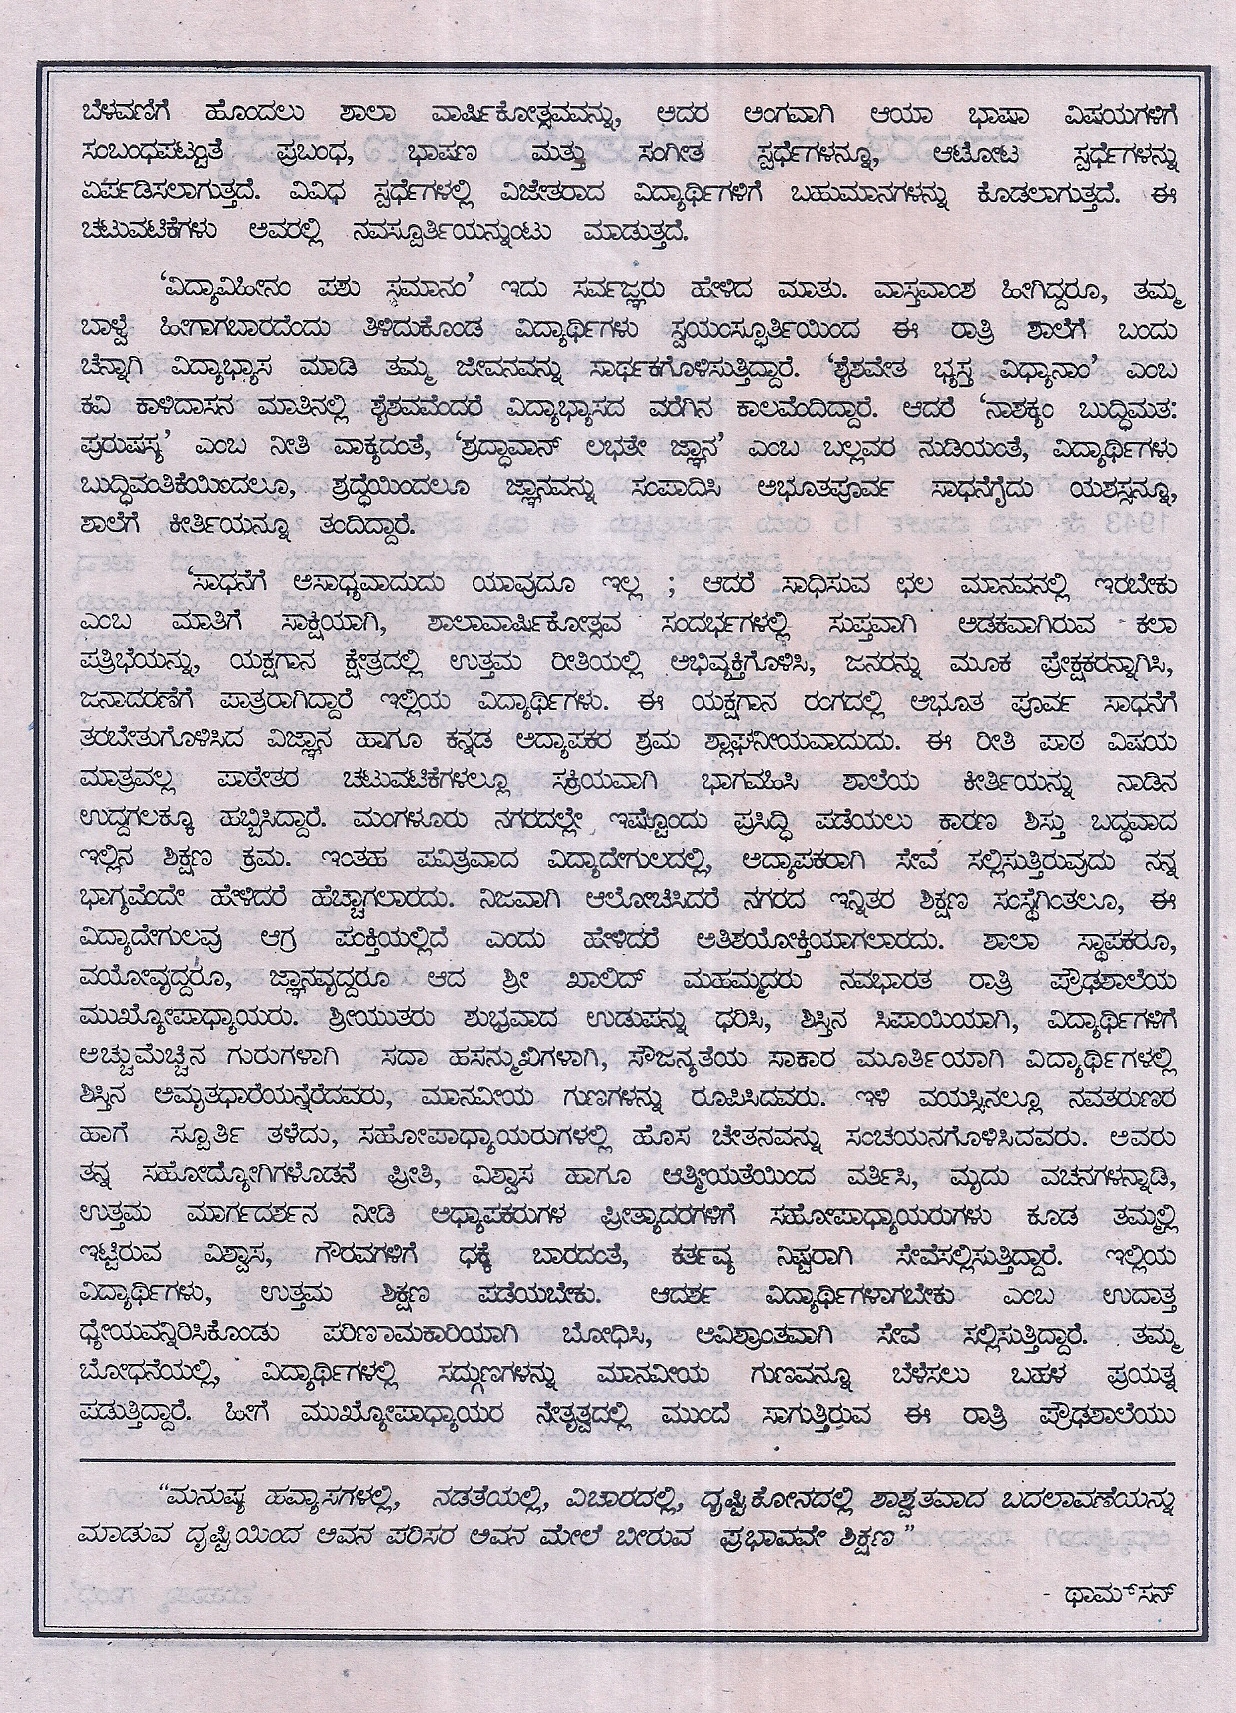 ಬೆಳವಣಿಗೆ ಹೊಂದಲು ಶಾಲಾ ವಾರ್ಷಿಕೋತ್ಸವವನ್ನು, ಅದರ ಅಂಗವಾಗಿ ಆಯಾ ಭಾಷಾ ವಿಷಯಗಳಿಗೆ
ಸಂಬಂಧಪಟ್ಟಂತೆ ಪ್ರಬಂಧ, ಭಾಷಣ ಮತ್ತು ಸಂಗೀತ ಸ್ಪರ್ಧೆಗಳನ್ನೂ, ಆಟೋಟ ಸ್ಪರ್ಧೆಗಳನ್ನು
ಏರ್ಪಡಿಸಲಾಗುತ್ತದೆ. ವಿವಿಧ ಸ್ಪರ್ಧೆಗಳಲ್ಲಿ ವಿಜೇತರಾದ ವಿದ್ಯಾರ್ಥಿಗಳಿಗೆ ಬಹುಮಾನಗಳನ್ನು ಕೊಡಲಾಗುತ್ತದೆ. ಈ
ಚಟುವಟಿಕೆಗಳು ಅವರಲ್ಲಿ ನವಸ್ಪೂರ್ತಿಯನ್ನುಂಟು ಮಾಡುತ್ತದೆ.
‘ವಿದ್ಯಾವಿಹೀನಂ ಪಶು ಸ್ಸಮಾನಂ’ ಇದು ಸರ್ವಜ್ಞರು ಹೇಳಿದ ಮಾತು. ವಾಸ್ತವಾಂಶ ಹೀಗಿದ್ದರೂ, ತಮ್ಮ
ಬಾಳ್ವೆ ಹೀಗಾಗಬಾರದೆಂದು ತಿಳಿದುಕೊಂಡ ವಿದ್ಯಾರ್ಥಿಗಳು ಸ್ವಯಂಸ್ಫೂರ್ತಿಯಿಂದ ಈ ರಾತ್ರಿ ಶಾಲೆಗೆ ಬಂದು
ಚೆನ್ನಾಗಿ ವಿದ್ಯಾಭ್ಯಾಸ ಮಾಡಿ ತಮ್ಮ ಜೀವನವನ್ನು ಸಾರ್ಥಕಗೊಳಿಸುತ್ತಿದ್ದಾರೆ. ‘ಶೈಶವೇತ ಭ್ಯಸ್ತ ವಿಧ್ಯಾನಾಂ’ ಎಂಬ
ಕವಿ ಕಾಳಿದಾಸನ ಮಾತಿನಲ್ಲಿ ಶೈಶವವೆಂದರೆ ವಿದ್ಯಾಭ್ಯಾಸದ ವರೆಗಿನ ಕಾಲವೆಂದಿದ್ದಾರೆ. ಆದರೆ ‘ನಾಶಕ್ಯಂ ಬುದ್ಧಿಮತ:
ಪುರುಷಸ್ಯ’ ಎಂಬ ನೀತಿ ವಾಕ್ಯದಂತೆ, ‘ಶ್ರದ್ಧಾವಾನ್ ಲಭತೇ ಜ್ಞಾನ’ ಎಂಬ ಬಲ್ಲವರ ನುಡಿಯಂತೆ, ವಿದ್ಯಾರ್ಥಿಗಳು
ಬುದ್ಧಿವಂತಿಕೆಯಿಂದಲೂ, ಶ್ರದ್ಧೆಯಿಂದಲೂ ಜ್ಞಾನವನ್ನು ಸಂಪಾದಿಸಿ ಅಭೂತಪೂರ್ವ ಸಾಧನೆಗೈದು ಯಶಸ್ಸನ್ನೂ,
ಶಾಲೆಗೆ ಕೀರ್ತಿಯನ್ನೂ ತಂದಿದ್ದಾರೆ.
‘ಸಾಧನೆಗೆ ಅಸಾಧ್ಯವಾದುದು ಯಾವುದೂ ಇಲ್ಲ ; ಆದರೆ ಸಾಧಿಸುವ ಛಲ ಮಾನವನಲ್ಲಿ ಇರಬೇಕು
ಎಂಬ ಮಾತಿಗೆ ಸಾಕ್ಷಿಯಾಗಿ, ಶಾಲಾವಾರ್ಷಿಕೋತ್ಸವ ಸಂದರ್ಭಗಳಲ್ಲಿ ಸುಪ್ತವಾಗಿ ಅಡಕವಾಗಿರುವ ಕಲಾ
ಪತ್ರಿಭೆಯನ್ನು, ಯಕ್ಷಗಾನ ಕ್ಷೇತ್ರದಲ್ಲಿ ಉತ್ತಮ ರೀತಿಯಲ್ಲಿ ಅಭಿವ್ಯಕ್ತಿಗೊಳಿಸಿ, ಜನರನ್ನು ಮೂಕ ಪ್ರೇಕ್ಷಕರನ್ನಾಗಿಸಿ,
ಜನಾದರಣೆಗೆ ಪಾತ್ರರಾಗಿದ್ದಾರೆ ಇಲ್ಲಿಯ ವಿದ್ಯಾರ್ಥಿಗಳು. ಈ ಯಕ್ಷಗಾನ ರಂಗದಲ್ಲಿ ಅಭೂತ ಪೂರ್ವ ಸಾಧನೆಗೆ
ತರಬೇತುಗೊಳಿಸಿದ ವಿಜ್ಞಾನ ಹಾಗೂ ಕನ್ನಡ ಅದ್ಯಾಪಕರ ಶ್ರಮ ಶ್ಲಾಘನೀಯವಾದುದು. ಈ ರೀತಿ ಪಾಠ ವಿಷಯ
ಮಾತ್ರವಲ್ಲ ಪಾಠೇತರ ಚಟುವಟಿಕೆಗಳಲ್ಲೂ ಸಕ್ರಿಯವಾಗಿ ಭಾಗವಹಿಸಿ ಶಾಲೆಯ ಕೀರ್ತಿಯನ್ನು ನಾಡಿನ
ಉದ್ದಗಲಕ್ಕೂ ಹಬ್ಬಿಸಿದ್ದಾರೆ. ಮಂಗಳೂರು ನಗರದಲ್ಲೇ ಇಷ್ಟೊಂದು ಪ್ರಸಿದ್ಧಿ ಪಡೆಯಲು ಕಾರಣ ಶಿಸ್ತು ಬದ್ಧವಾದ
ಇಲ್ಲಿನ ಶಿಕ್ಷಣ ಕ್ರಮ. ಇಂತಹ ಪವಿತ್ರವಾದ ವಿದ್ಯಾದೇಗುಲದಲ್ಲಿ, ಅದ್ಯಾಪಕರಾಗಿ ಸೇವೆ ಸಲ್ಲಿಸುತ್ತಿರುವುದು ನನ್ನ
ಭಾಗ್ಯವೆಂದೇ ಹೇಳಿದರೆ ಹೆಚ್ಚಾಗಲಾರದು. ನಿಜವಾಗಿ ಆಲೋಚಿಸಿದರೆ ನಗರದ ಇನ್ನಿತರ ಶಿಕ್ಷಣ ಸಂಸ್ಥೆಗಿಂತಲೂ, ಈ
ವಿದ್ಯಾದೇಗುಲವು ಅಗ್ರ ಪಂಕ್ತಿಯಲ್ಲಿದೆ ಎಂದು ಹೇಳಿದರೆ ಅತಿಶಯೋಕ್ತಿಯಾಗಲಾರದು. ಶಾಲಾ ಸ್ಥಾಪಕರೂ,
ವಯೋವೃದ್ದರೂ, ಜ್ಞಾನವೃದ್ದರೂ ಆದ ಶ್ರೀ ಖಾಲಿದ್ ಮಹಮ್ಮದರು ನವಭಾರತ ರಾತ್ರಿ ಪ್ರೌಢಶಾಲೆಯ
ಮುಖ್ಯೋಪಾಧ್ಯಾಯರು. ಶ್ರೀಯುತರು ಶುಭ್ರವಾದ ಉಡುಪನ್ನು ಧರಿಸಿ, ಶಿಸ್ತಿನ ಸಿಪಾಯಿಯಾಗಿ, ವಿದ್ಯಾರ್ಥಿಗಳಿಗೆ
ಅಚ್ಚುಮೆಚ್ಚಿನ ಗುರುಗಳಾಗಿ ಸದಾ ಹಸನ್ಮುಖಿಗಳಾಗಿ, ಸೌಜನ್ಯತೆಯ ಸಾಕಾರ ಮೂರ್ತಿಯಾಗಿ ವಿದ್ಯಾರ್ಥಿಗಳಲ್ಲಿ
ಶಿಸ್ತಿನ ಅಮೃತಧಾರೆಯನ್ನೆರೆದವರು, ಮಾನವೀಯ ಗುಣಗಳನ್ನು ರೂಪಿಸಿದವರು. ಇಳಿ ವಯಸ್ಸಿನಲ್ಲೂ ನವತರುಣರ
ಹಾಗೆ ಸ್ಪೂರ್ತಿ ತಳೆದು, ಸಹೋಪಾಧ್ಯಾಯರುಗಳಲ್ಲಿ ಹೊಸ ಚೇತನವನ್ನು ಸಂಚಯನಗೊಳಿಸಿದವರು. ಅವರು
ತನ್ನ ಸಹೋದ್ಯೋಗಿಗಳೊಡನೆ ಪ್ರೀತಿ, ವಿಶ್ವಾಸ ಹಾಗೂ ಆತ್ಮೀಯತೆಯಿಂದ ವರ್ತಿಸಿ, ಮೃದು ವಚನಗಳನ್ನಾಡಿ,
ಉತ್ತಮ ಮಾರ್ಗದರ್ಶನ ನೀಡಿ ಅಧ್ಯಾಪಕರುಗಳ ಪ್ರೀತ್ಯಾದರಗಳಿಗೆ ಸಹೋಪಾಧ್ಯಾಯರುಗಳು ಕೂಡ ತಮ್ಮಲ್ಲಿ
ಇಟ್ಟಿರುವ ವಿಶ್ವಾಸ, ಗೌರವಗಳಿಗೆ ಧಕ್ಕೆ ಬಾರದಂತೆ, ಕರ್ತವ್ಯ ನಿಷ್ಟರಾಗಿ ಸೇವೆಸಲ್ಲಿಸುತ್ತಿದ್ದಾರೆ. ಇಲ್ಲಿಯ
ವಿದ್ಯಾರ್ಥಿಗಳು, ಉತ್ತಮ ಶಿಕ್ಷಣ ಪಡೆಯಬೇಕು. ಆದರ್ಶ ವಿದ್ಯಾರ್ಥಿಗಳಾಗಬೇಕು ಎಂಬ ಉದಾತ್ತ
ಧ್ಯೇಯವನ್ನಿರಿಸಿಕೊಂಡು ಪರಿಣಾಮಕಾರಿಯಾಗಿ ಬೋಧಿಸಿ, ಅವಿಶ್ರಾಂತವಾಗಿ ಸೇವೆ ಸಲ್ಲಿಸುತ್ತಿದ್ದಾರೆ. ತಮ್ಮ
ಬೋಧನೆಯಲ್ಲಿ, ವಿದ್ಯಾರ್ಥಿಗಳಲ್ಲಿ ಸದ್ಗುಣಗಳನ್ನು ಮಾನವೀಯ ಗುಣವನ್ನೂ ಬೆಳೆಸಲು ಬಹಳ ಪ್ರಯತ್ನ
ಪಡುತ್ತಿದ್ದಾರೆ. ಹೀಗೆ ಮುಖ್ಯೋಪಾಧ್ಯಾಯರ ನೇತೃತ್ವದಲ್ಲಿ ಮುಂದೆ ಸಾಗುತ್ತಿರುವ ಈ ರಾತ್ರಿ ಪ್ರೌಢಶಾಲೆಯು
“ಮನುಷ್ಯ ಹವ್ಯಾಸಗಳಲ್ಲಿ, ನಡತೆಯಲ್ಲಿ, ವಿಚಾರದಲ್ಲಿ, ದೃಷ್ಟಿಕೋನದಲ್ಲಿ ಶಾಶ್ವತವಾದ ಬದಲಾವಣೆಯನ್ನು
ಮಾಡುವ ದೃಷ್ಟಿಯಿಂದ ಅವನ ಪರಿಸರ ಅವನ ಮೇಲೆ ಬೀರುವ ಪ್ರಭಾವವೇ ಶಿಕ್ಷಣ”
- ಥಾಮ್‌ಸನ್